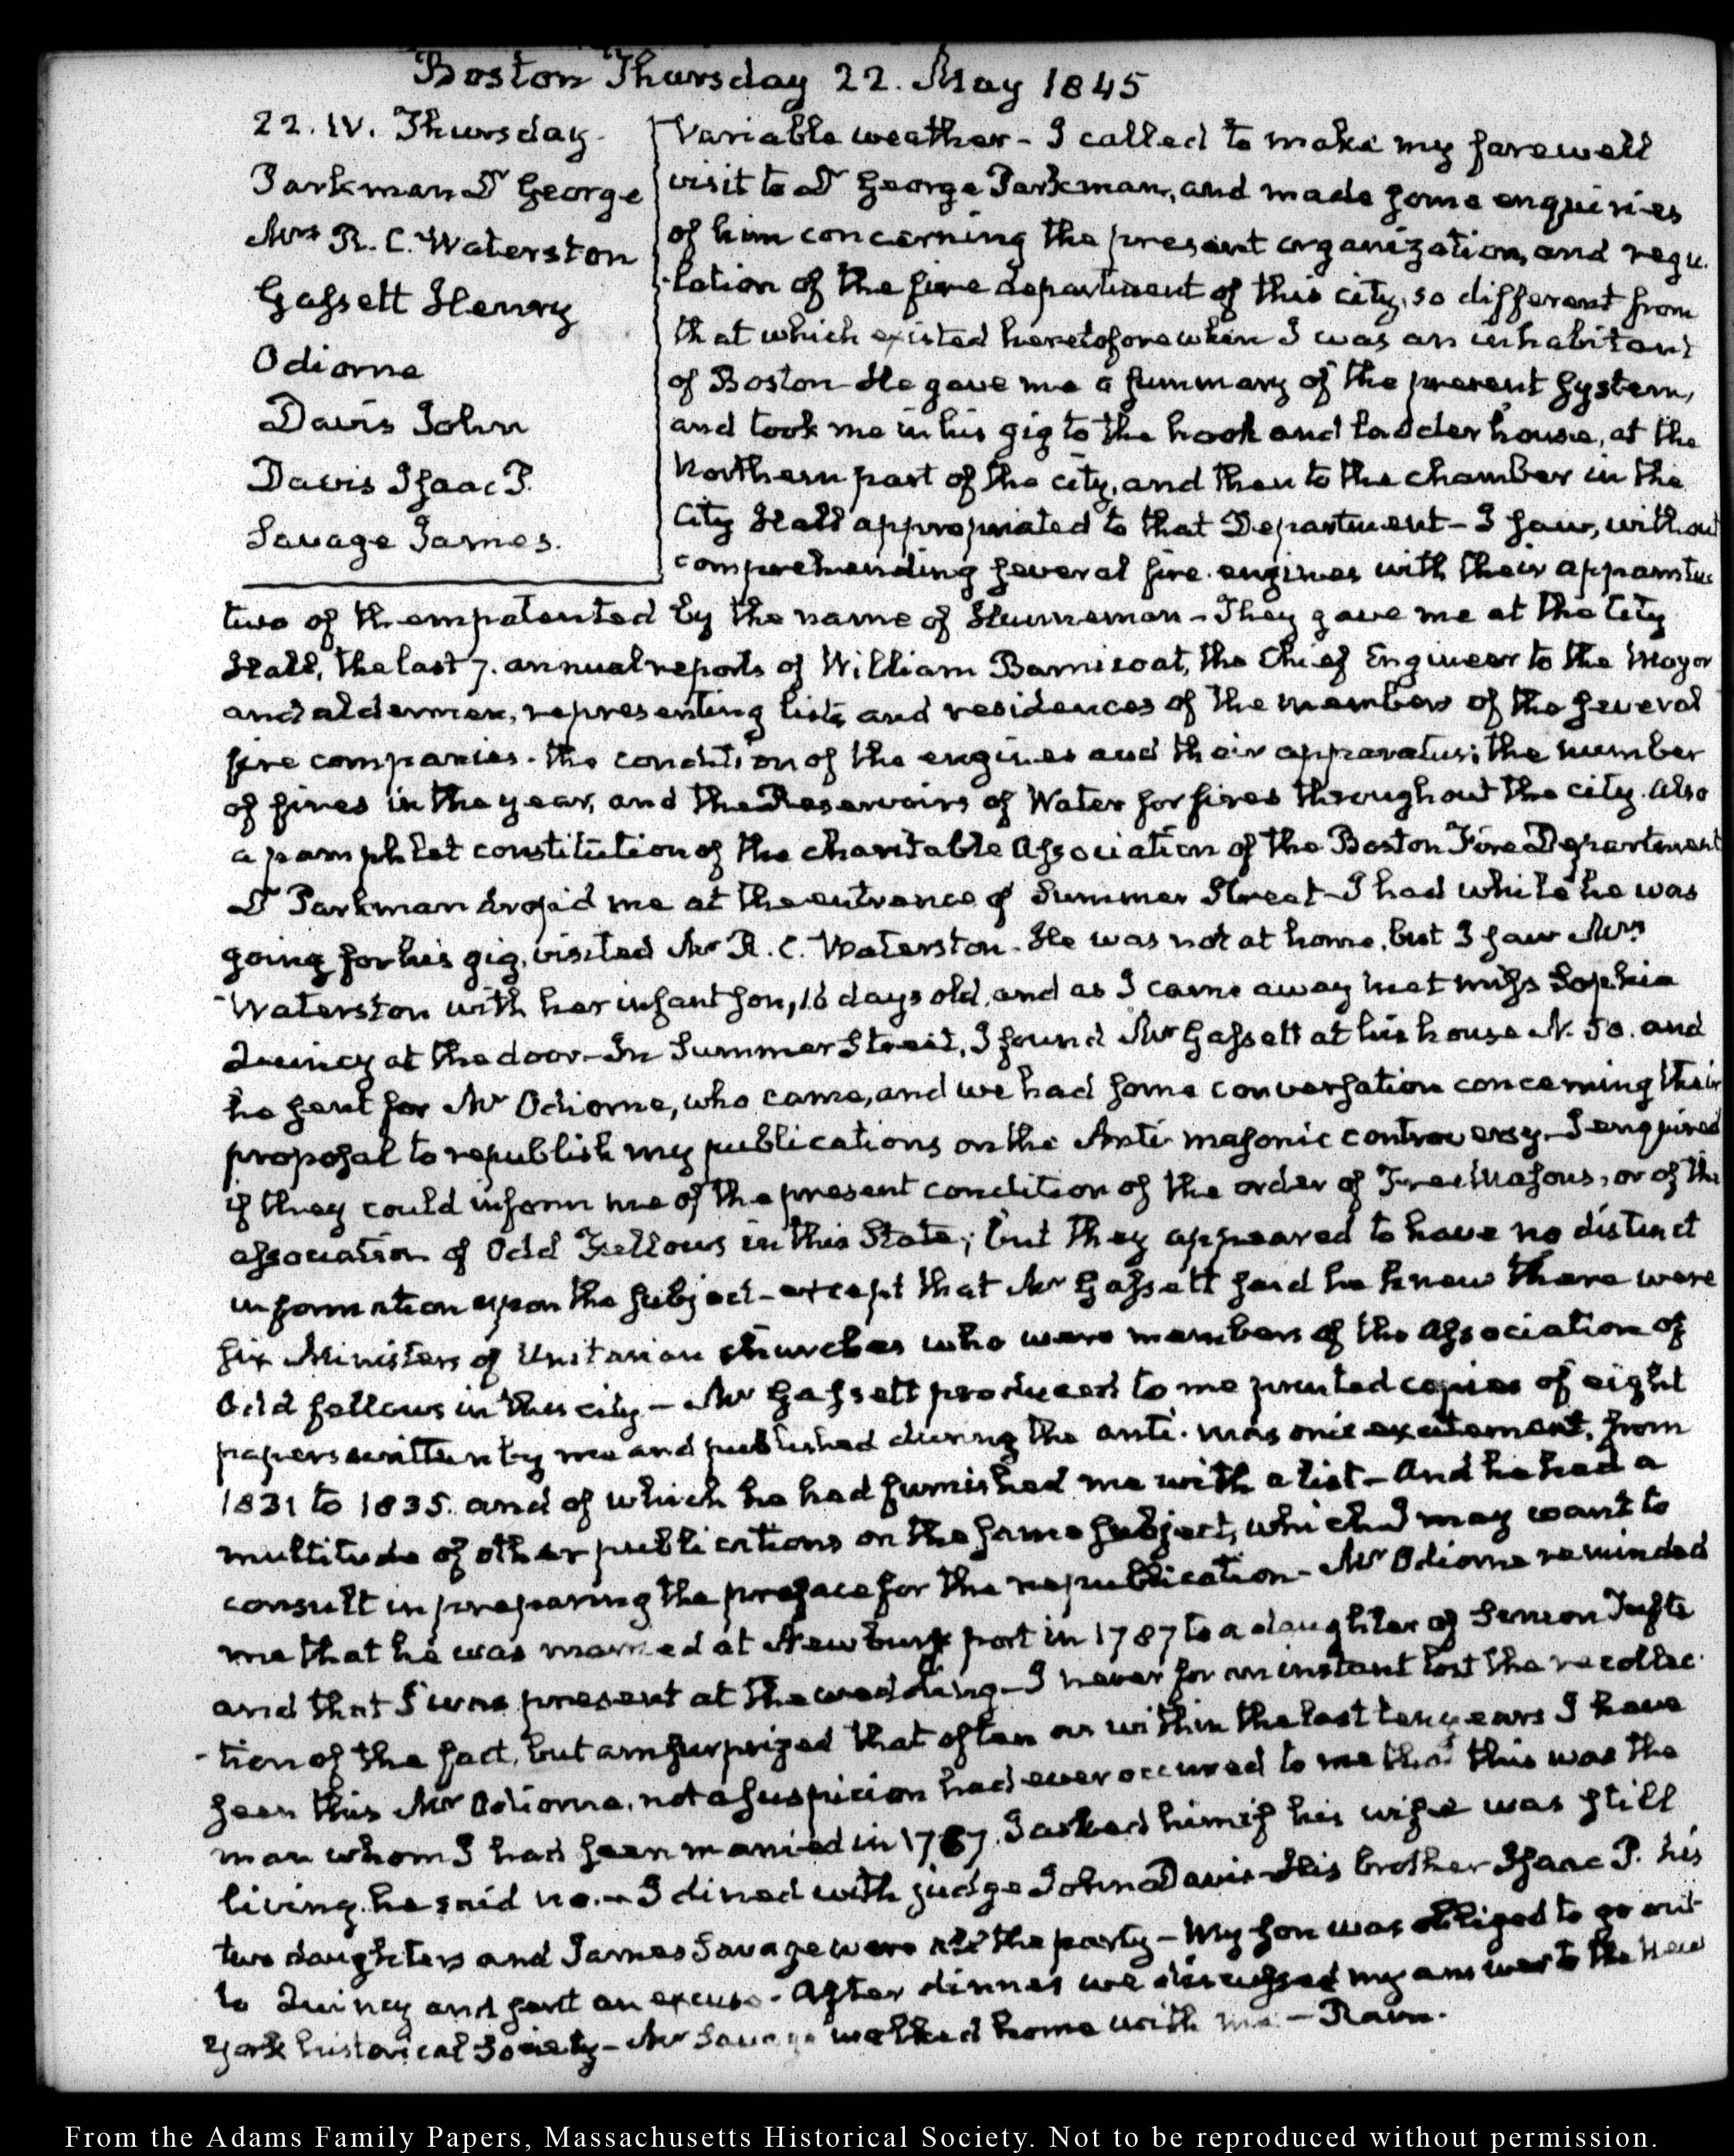 Boston Thursday 22. May 1845
22. IV. Thursday.
Parkman Dr George
Mrs R. C. Waterston
Gassett Henry
Odiorne
Davis John
Davis Isaac P.
Savage James.
Variable weather – I called to make my farewell
visit to Dr George Parkman, and made some enquiries
of him concerning the present organization, and regu-
-lation of the fire department of this city, so different from
that which existed heretofore when I was an inhabitant
of Boston – He gave me a summary of the present system,
and took me in his gig to the hook and ladder house, at the
Northern part of the city, and then to the chamber in the
City Hall appropriated to that Department – I saw, without
comprehending several fire engines with their apparatus
two of them patented by the name of Hunneman – They gave me at the City
Hall, the last 7. annual reports of William Barnicoat, the Chief Engineer to the Mayor
and aldermen, representing lists and residences of the members of the several
fire companies. the condition of the engines and their apparatus; the number
of fires in the year, and the Reservoirs of Water for fires throughout the city. Also
a pamphlet constitution of the charitable Association of the Boston Fire Department
Dr Parkman drop'd me at the entrance of Summer Street – I had while he was
going for his gig, visited Mr R. C. Waterston. He was not at home, but I saw Mrs
Waterston with her infant son, 16 days old, and as I came away met miss Sophia
Quincy at the door – In Summer Street, I found Mr Gassett at his house N. 50. and
he sent for Mr Odiorne, who came, and we had some conversation concerning their
proposal to republish my publications on the Anti-masonic controversy – I enquired
if they could inform me of the present condition of the order of Free Masons, or of the
association of Odd Fellows in this State; but they appeared to have no distinct
information upon the subject – except that Mr Gassett said he knew there were
six Ministers of Unitarian churches who were members of the Association of
Odd fellows in this city – Mr Gassett produced to me printed copies of eight
papers written by me and published during the anti-masonic excitement, from
1831 to 1835. and of which he had furnished me with a list – And he had a
multitude of other publications on the same subject, which I may want to
consult in preparing the preface for the republication – Mr Odiorne reminded
me that he was married at Newbury port in 1787 to a daughter of Simeon Tufts
and that I was present at the wedding – I never for an instant lost the recollec-
-tion of the fact, but am surprized that often as within the last ten years I have
seen this Mr Odiorne, not a suspicion had ever occurred to me that this was the
man whom I had seen married in 1787. I asked him if his wife was still
living. he said no. – I dined with judge John Davis – His brother Isaac P. his
two daughters and James Savage were all the party – My son was obliged to go out
to Quincy and sent an excuse. After dinner we discussed my answer to the New
York historical Society – Mr Savage walked home with me – Rain.
From the Adams Family Papers, Massachusetts Historical Society. Not to be reproduced without permission.